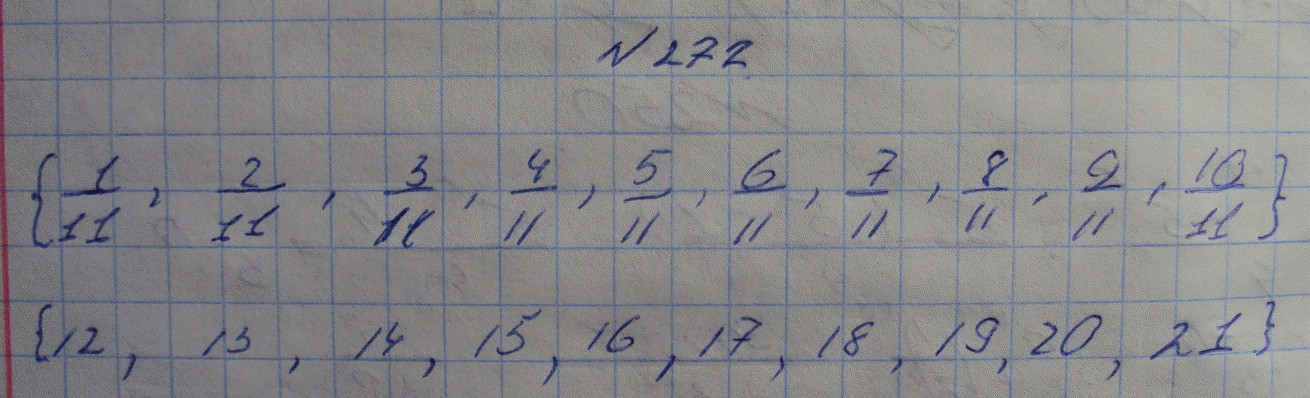 № 272
{1/11, 2/11, 3/11, 4/11, 5/11, 6/11, 7/11, 8/11, 9/11, 10/11}
{12, 13, 14, 15, 16, 17, 18, 19, 20, 21}